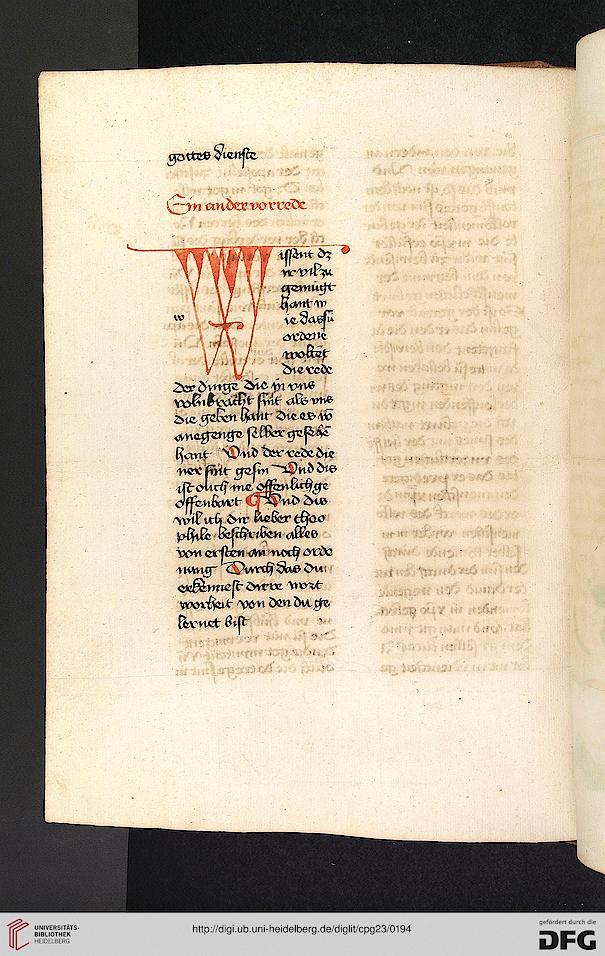 gottes dienste
Ein ander vorrede
Wissent dz
ir vil zu
gemügt
hant w
w
ie das sü
ordene
woltēt
die rede
der dinge die in vns
volnbracht sint als vns
die geben hant die es vō
anegenge selber gesehē
hant Vnd der rede die
ner sint gesin Vnd dis
ist ouch me offenlich ge
offenbart Vnd dis
wil ich dir lieber theo
phile beschriben alles
von ersten an noch orde
nung Durch das du
erkennest dirre wort
worheit von den du ge
lernet bist
UNIVERSITÄTS-
BIBLIOTHEK
HEIDELBERG
http://digi.ub.uni-heidelberg.de/diglit/cpg23/0194
gefördert durch die
DFG